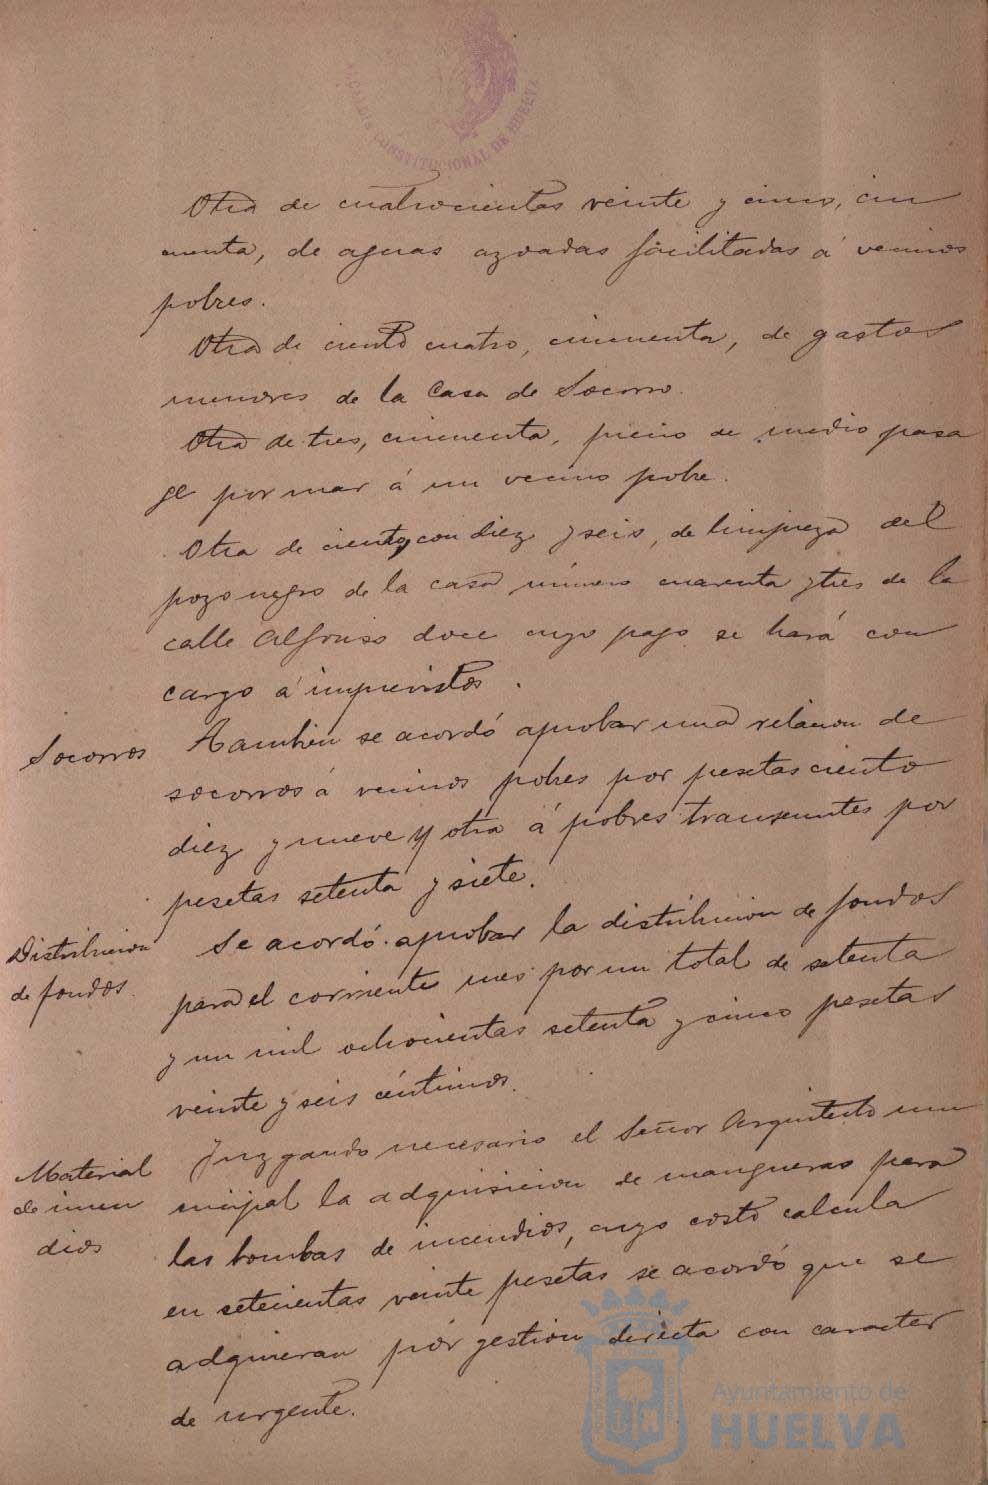 ALCALDIA CONSTITUCIONAL DE HUELVA
Otra de cuatrocientas veinte y cinco, cin
cuenta, de aguas azoadas facilitadas á vecinos
pobres.
Otra de ciento cuatro, cincuenta, de gastos
menores de la Casa de Socorro.
Otra de tres, cincuenta, precio de medio pasa
ge por mar á un vecino pobre.
Otra de ciento, con diez y seis, de limpieza del
pozo negro de la casa número cuarenta y tres de la
calle Alfonso doce cuyo pago se hará con
cargo á imprevistos.
Socorros
Tambien se acordó aprobar una relacion de
socorros á vecinos pobres por pesetas ciento
diez y nueve y otra á pobres transeuntes por
pesetas setenta y siete.
Distribucion
de fondos.
Se acordó aprobar la distribucion de fondos
para el corriente mes por un total de setenta
y un mil ochocientas setenta y cinco pesetas
veinte y seis céntimos.
Material
de incen
dios
Juzgando necesario el Señor Arquitecto mu
nicipal la adquisicion de mangueras para
las bombas de incendios, cuyo costo calcula
en setecientas veinte pesetas se acordó que se
adquieran por gestion directa con caracter
de urgente.
Ayuntamiento de
HUELVA